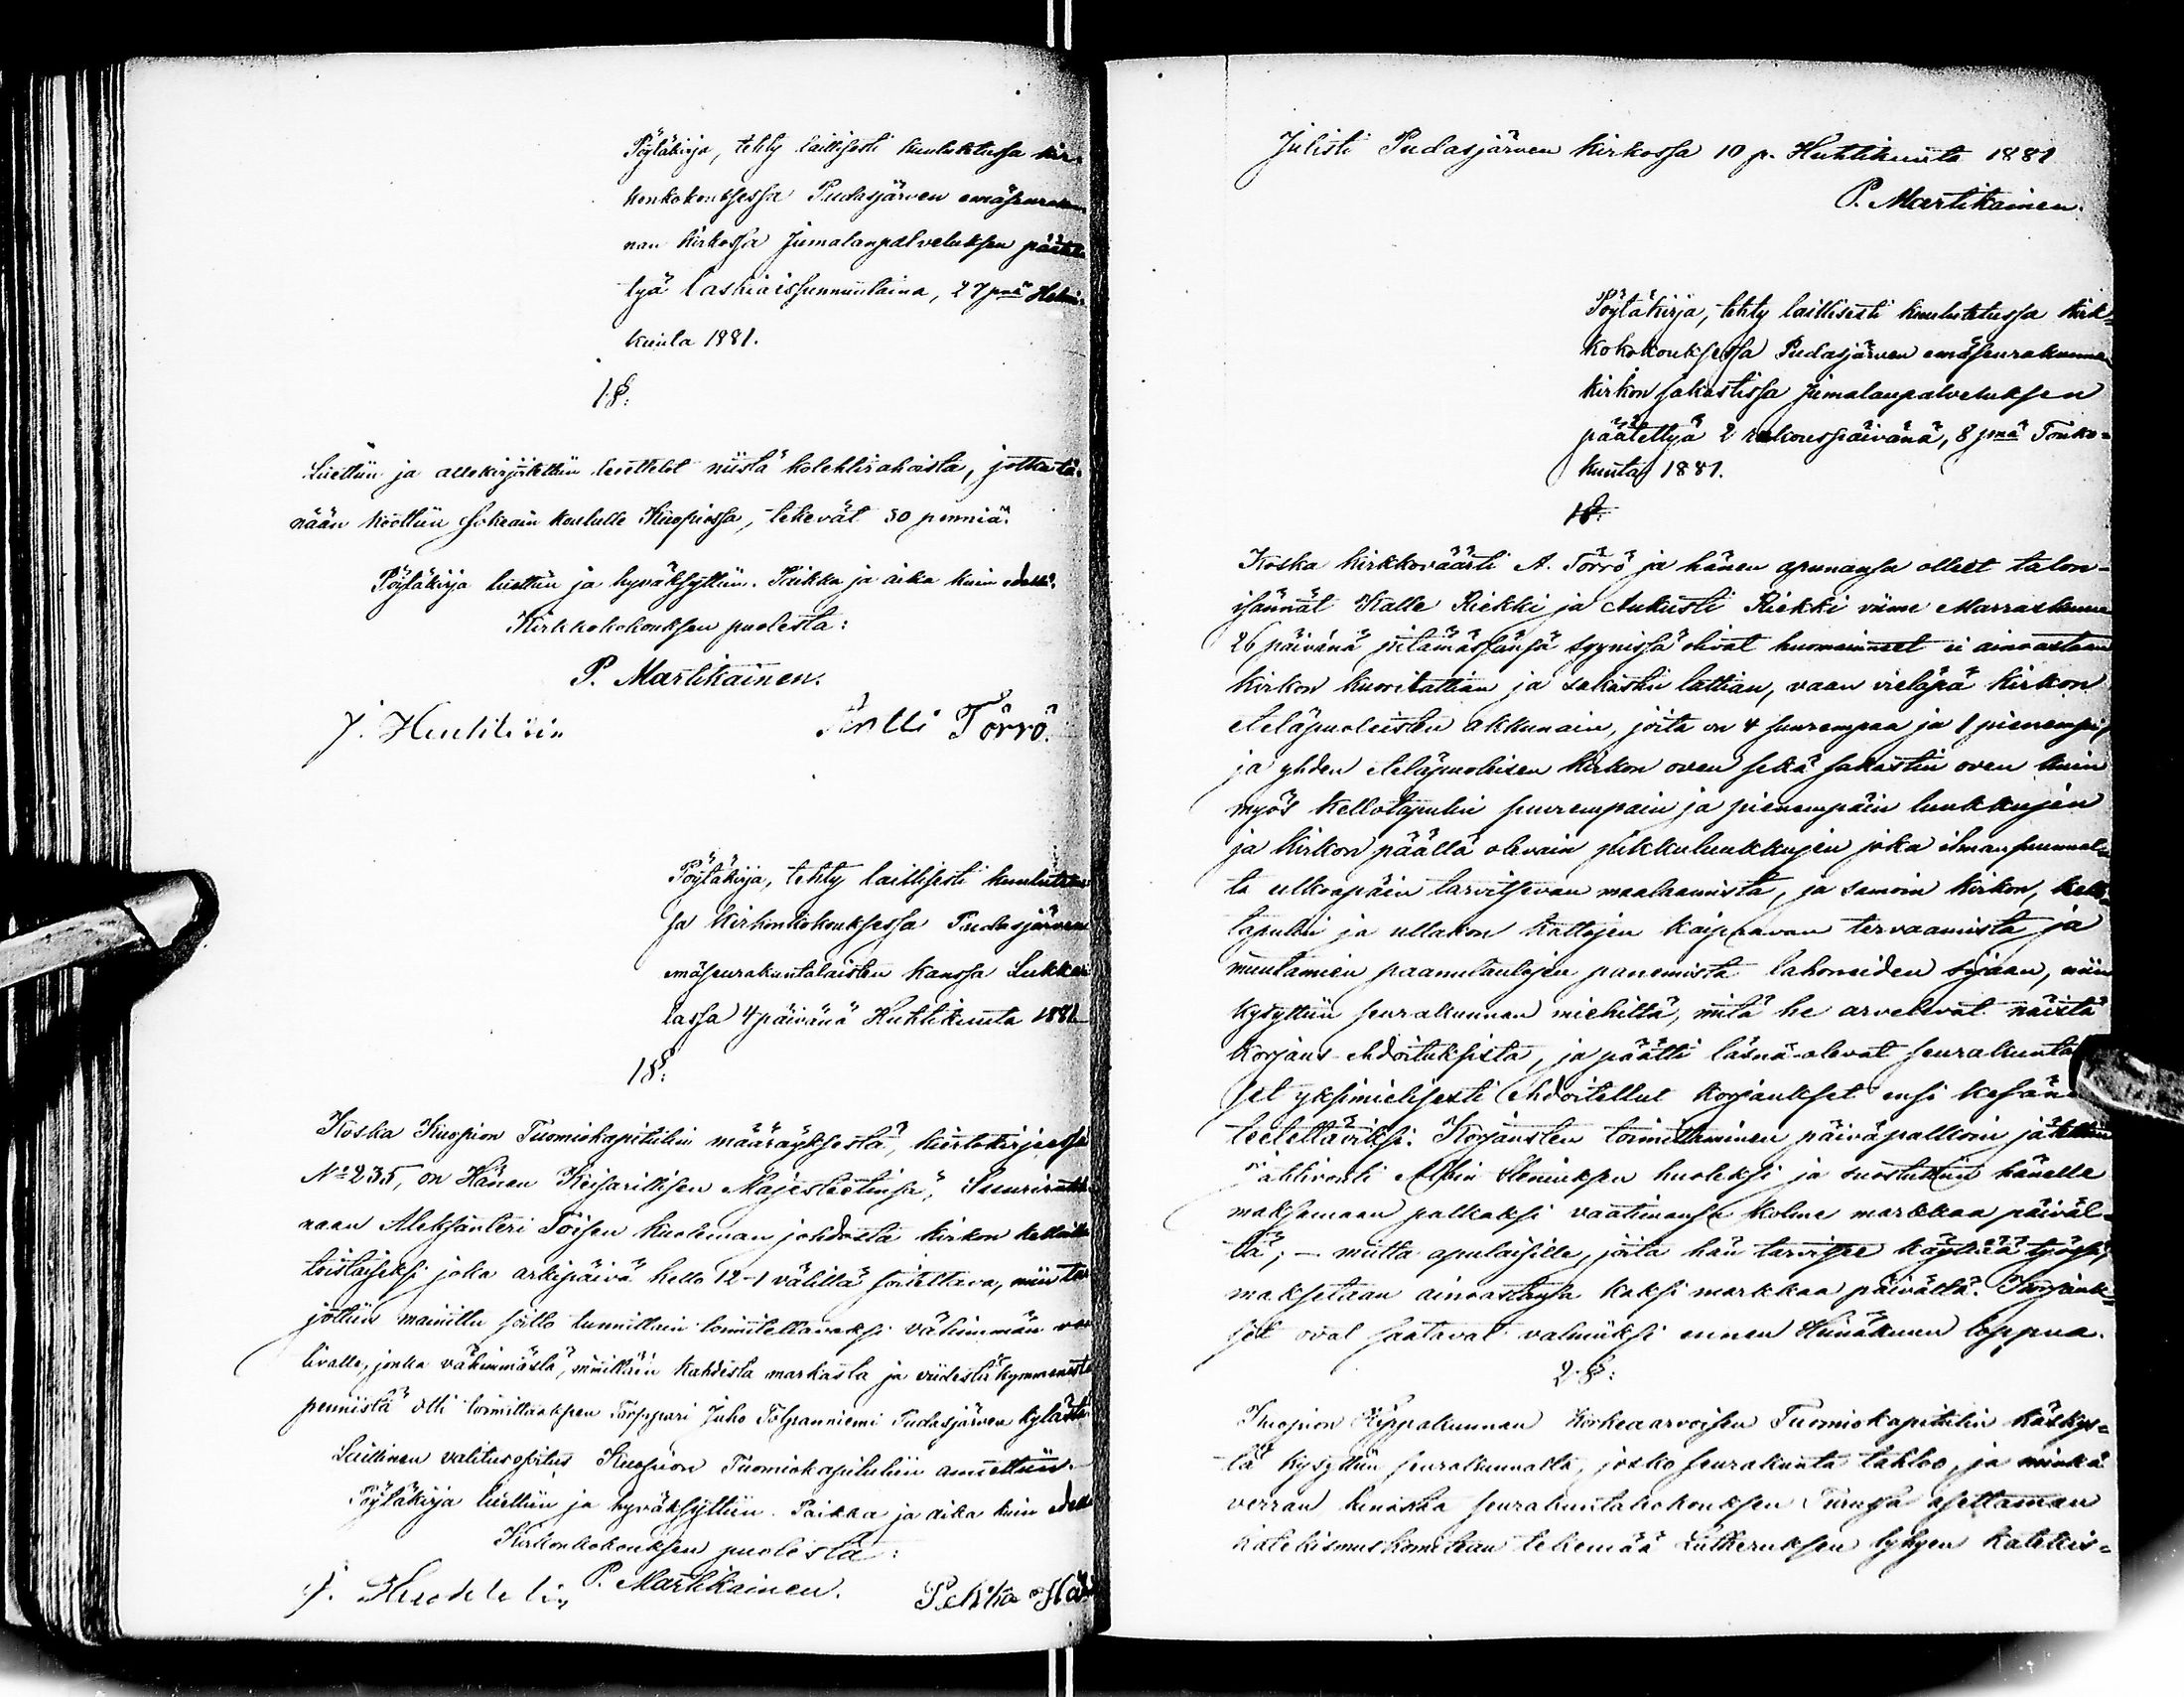 Pöytäkirja, tehty laillisesti kuulutetussa kir-
konkokouksessa Pudasjärven emäseurakun-
nan kirkossa Jumalanpalveluksen päätet-
tyä laskiaissunnuntaina, 27 pnä Helmi-
kuuta 1881.
1 §:
Luettiin ja allekirjoitettiin luettelot niistä kolehtirahoista, jotka tä-
nään koottiin sokeain koululle Kuopiossa, tekevät 50 penniä.
Pöytäkirja luettiin ja hyväksyttiin. Paikka ja aika kuin edellä.
Kirkkokokouksen puolesta:
P. Martikainen.
J. Antti Törrö.
Pöytäkirja, tehty laillisesti kuulutetus-
sa kirkonkokouksessa Pudasjärven
emäseurakuntalaisten kanssa Lukkari-
lassa 4 päivänä Huhtikuuta 1881
1 §:
Koska Kuopion Tuomiokapitulin määräyksestä, kiertokirjeessä
No 235, on Hänen Keisarillisen Majesteetinsa, Suuriruhti-
naan Aleksanteri Toisen kuoleman johdosta kirkon kelloilla
toistaiseksi joka arkipäivä kello 12-1 välillä soitettava, niin tar-
jottiin mainittu soitto tunnittain toimitettavaksi vähimmän vaa-
tivalle, jonka vähimmästä, nimittäin kahdesta markasta ja viidestäkymmenestä
pennistä otti toimittaaksen Torppari Juho Tolpanniemi Pudasjärven kylästä.
Laillinen valitusosoitus Kuopion Tuomiokapituliin annettiin.
Pöytäkirja luettiin ja hyväksyttiin. Paikka ja aika kuin edellä
Kirkonkokouksen puolesta:
J. P. Martikainen. Pekka
Julisti Pudasjärven kirkossa 10 p. Huhtikuuta 1881
P. Martikainen.
Pöytäkirja, tehty laillisesti kuulutetussa kirk-
kokokouksessa Pudasjärven emäseurakunnan
kirkon sakastissa Jumalanpalveluksen
päätettyä 2 rukouspäivänä, 8 pnä Touko-
kuuta 1881.
1 §:
Koska kirkkoväärti A. Törrö ja hänen apunansa olleet talon-
isännät Kalle Riekki ja Aukusti Riekki viime Marraskuun
26 päivänä pitämässänsä syynissä olivat huomainneet ei ainoastaan
kirkon kuorilattian ja sakastin lattian, vaan vieläpä kirkon
eteläpuoleisten akkunain, joita on 4 suurempaa ja 1 pienempi,
ja yhden eteläpuoleisen kirkon oven sekä sakastin oven kuin
myös kellotapulin suurempain ja pienempäin luukkujen
ja kirkon päällä olevain pikkuluukkujen joka ilmansuunnal-
ta ulkoapäin tarvitsevan maalaamista, ja samoin kirkon, kello-
tapulin ja ullakon kattojen kaipaavan tervaamista ja
muutamien paanutaulujen panemista lahonneiden sijaan, niin
kysyttiin seurakunnan miehiltä, mitä he arvelevat näistä
korjaus-ehdoituksista, ja päätti läsnä-olevat seurakuntalai-
set yksimielisesti ehdoitellut korjaukset ensi kesänä
teetettäviksi. Korjausten toimittaminen päiväpalkoin jätettiin
Vahtivouti huoleksi ja suostuttiin hänelle
maksamaan palkaksi vaatimansa kolme markkaa päiväl-
tä; — mutta apulaisille, joita hän tarvitsee käyttää työssä,
maksetaan ainoastansa kaksi markkaa päivältä. Korjauk-
set ovat saatavat valmiiksi ennen Heinäkuun loppua.
2 §:
Kuopion Hippakunnan Korkeaarvoisen Tuomiokapitulin käskys-
tä kysyttiin seurakunnalta, josko seurakunta tahtoo, ja minkä
verran lunastaa seurakuntakokouksen Turussa asettaman
katekismuskomitean tekemää Lutheruksen lyhyen katekis-